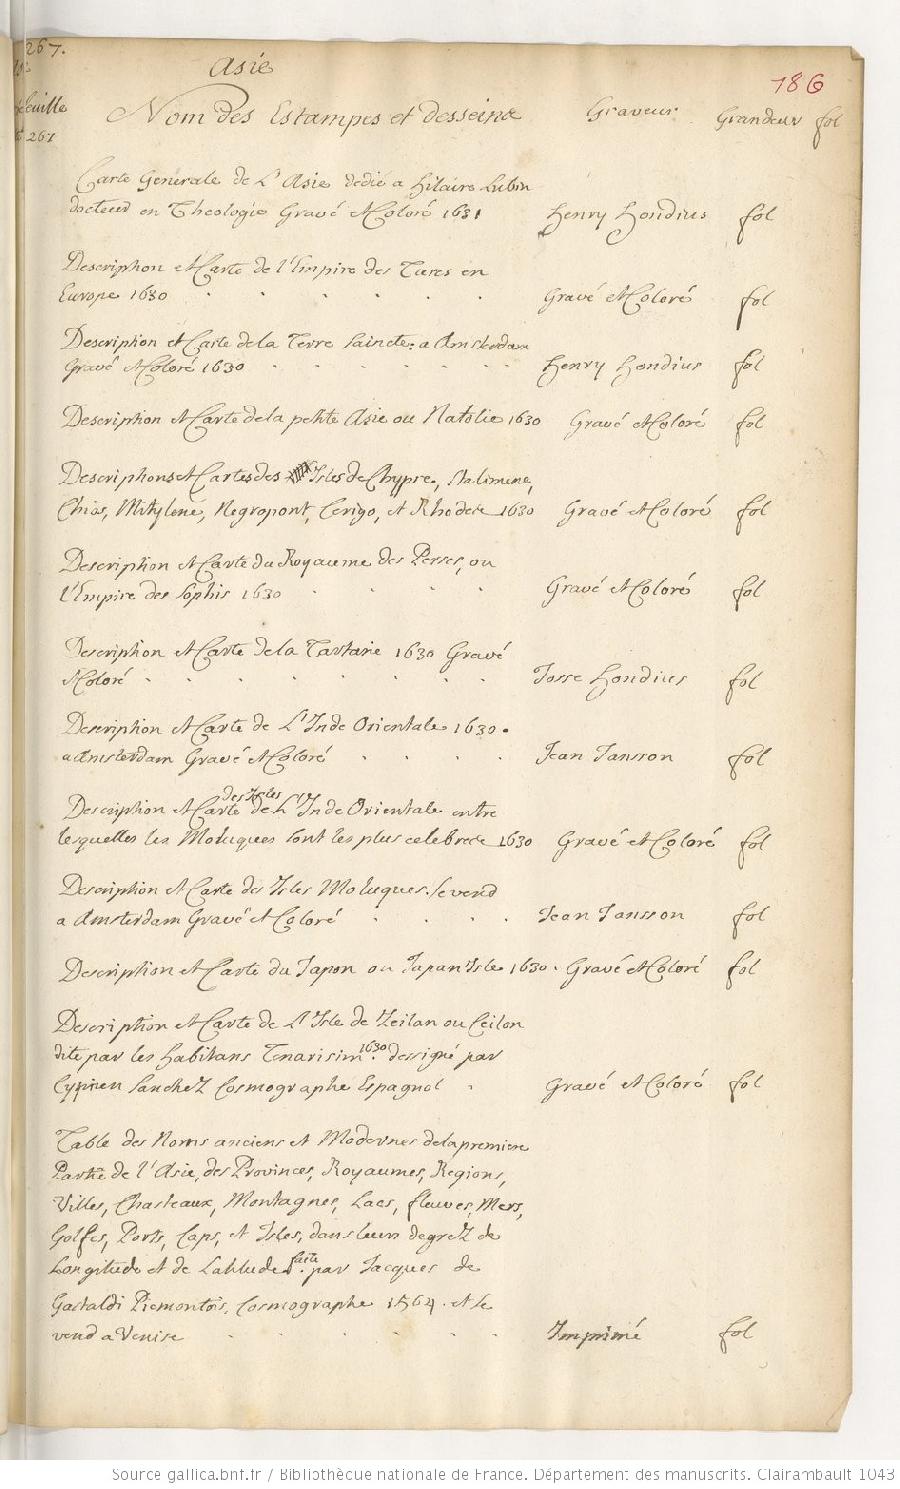 267.
Asie
186
feuille
267
Nom des Estampes et desseins Graveur Grandeur fol
Carte Generale de L'Asie dedié a hilaire Lubin
docteur en Theologie Gravé et Coloré 1631 Henry Hondius fol
Description et Carte de l'Empire des Turcs en
Europe 1630 Gravé et Coloré fol
Description et Carte de la Terre Saincte; a Amsterdam
Gravé et Coloré 1630 Henry Hondius fol
Description et Carte de la petite Asie ou Natolie 1630 Gravé et Coloré fol
Descriptions et Cartes des Isles de Chypre, Stalimene,
Chios, Mitylene, Negropont, Cerigo, et Rhodes 1630 Gravé et Coloré fol
Description et Carte du Royaume des Perses, ou
l'Empire des Sophis 1630 Gravé et Coloré fol
Description et Carte de la Tartarie 1630 Gravé
et Coloré Josse Hondius fol
Description et Carte de L'Inde Orientale 1630.
a Amsterdam Gravé et Coloré Jean Jansson fol
des Isles
Description et Carte de L'Inde Orientale entre
lesquelles les Moluques sont les plus celebres 1630 Gravé et Coloré fol
Description et Carte des Isles Moluques. se vend
a Amsterdam Gravé et Coloré Jean Jansson fol
Description et Carte du Japon ou Japan Isle 1630. Gravé et Coloré fol
Description et Carte de L'Isle de Zeilan ou Ceilon
dite par les habitans Tenarisim 1630. dessigné par
Cyprien Sanchez Cosmographe Espagnol Gravé et Coloré fol
Table des Noms anciens et Modernes de la premiere
Partie de l'Asie, des Provinces, Royaumes, Regions,
Villes, Chasteaux, Montagnes, Lacs, fleuves, Mers,
Golfes, Ports, Caps, et Isles, dans leurs degrez de
Longitude et de Latitude faite par Jacques de
Gastaldi Piemontois, Cosmographe 1564. et se
vend a Venise Imprimé fol
Source gallica.bnf.fr / Bibliothèque nationale de France. Département des manuscrits. Clairambault 1043